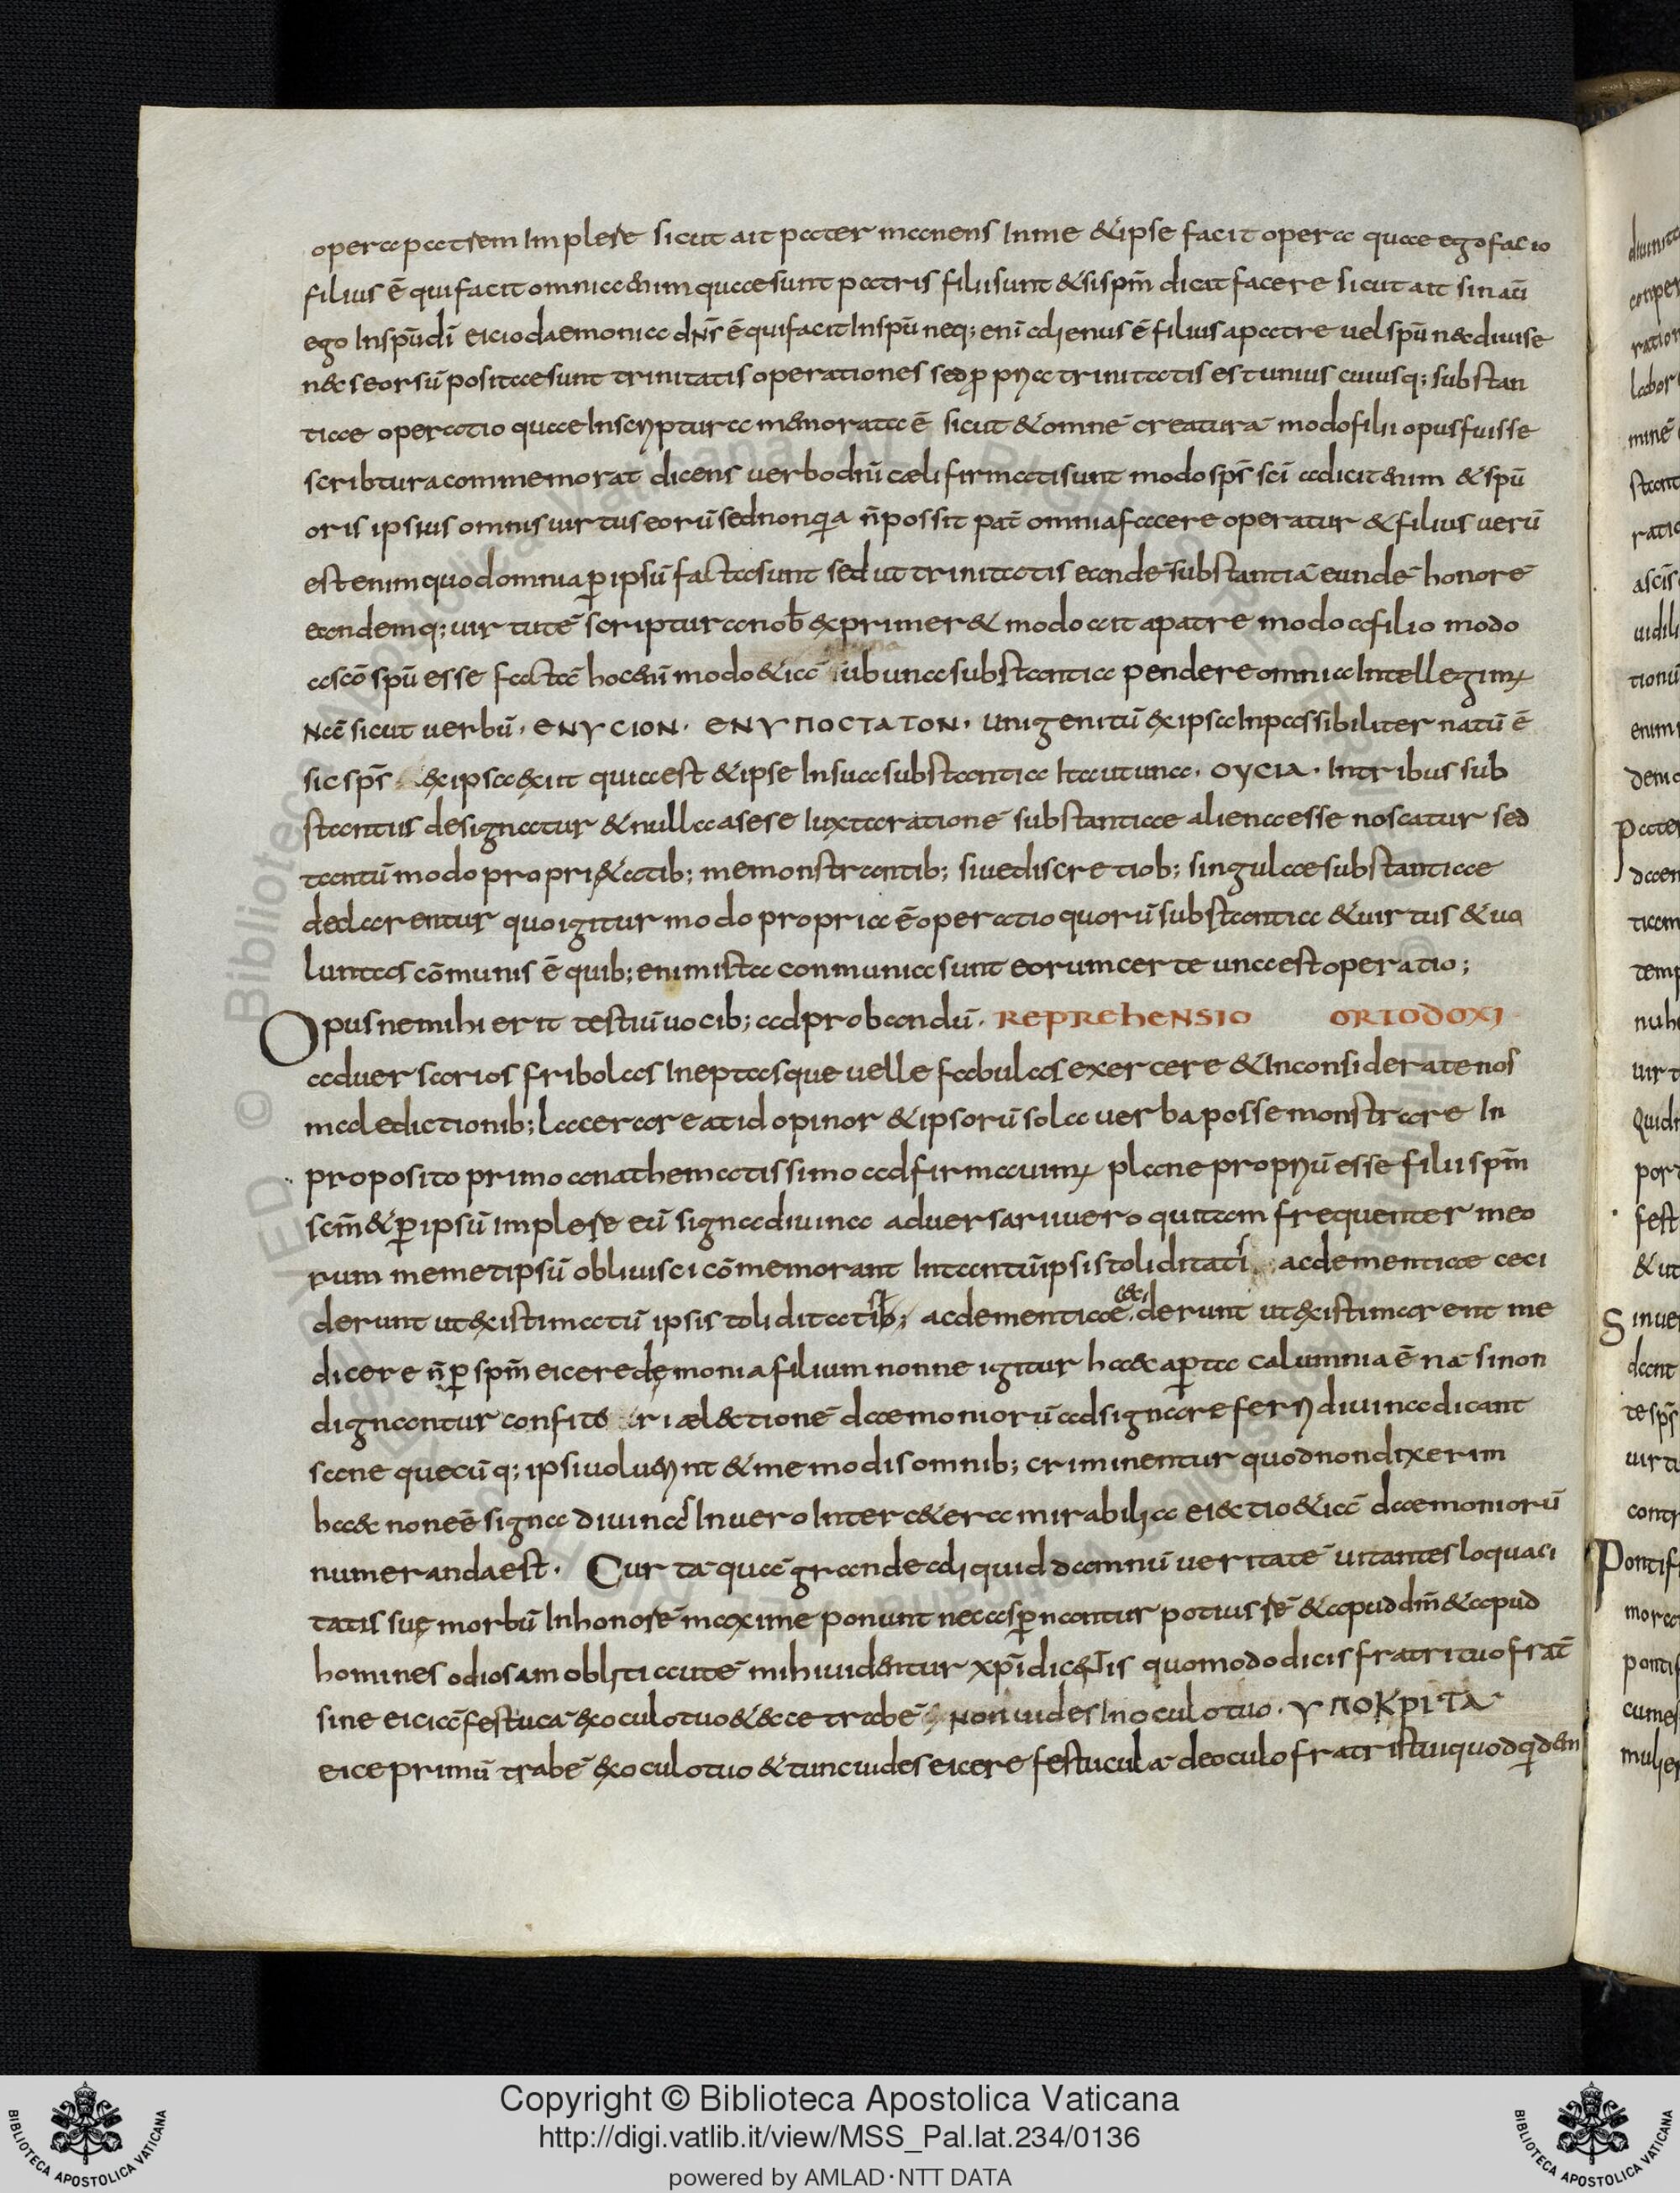 opera patrem Implere sicut ait pater manens Inme &ipse facit opera quae egofacio
filius ē quifacit omnia &nim quaesunt patris filiisunt &sispm̄ dicat facere sicut ait sin aū
ego Inspūdī eiciodaemonia dn̄s ēquifacitInspū neq; enī alienus ē filius apatre uel spū n&cdiuise
n&c seorsū positaesunt trinitatis operationes sedp pria trinitatis est unius cuiusq; substan
tiae operatio quaeInscriptura m&morata ē sicut &omnē creaturā modofilii opusfuisse
scribturacommemorat dicens uerbodn̄i cæli firmatisunt modo sps̄ sc̄i adicit &nim &spū
oris ipsius omnis uirtus eorū sednonqia n̄possit pat̄ omniafacere operatur &filius uerū
est enim quodomnia p̱ipsū factasunt sed ut trinitatis eandē substantiā eundē honorē
eandemq; uirtutē scriptura nob̄ exprimer& modo ait apatre modo afilio modo
ascō spū esse factā hoc&nī modo&iā subunasubstantia pendere omnia Intellegim;
Nā sicut uerbū · ΕΝΥCION · ΕΝΥΠΟCΤΑΤΟΝ · unigenitū exipsaInpassibiliter natū ē
sic sps̄ exipsaexiit quiaest &ipse Insuasubstantia Itautuna · ΟΥCΙΑ · Intribus sub
stantiis designatur &nulla asese Iuxtarationē substantiae alienaesse noscatur sed
tantū modo propri&atib; memonstrantib; siuediscretiob; singulaesubstantiae
declarentur quoigitur modo propria ēoperatio quorū substantia &uirtus &uo
luntas cōmunis ē quib; enim ista conmunia sunt eorumcerte unaestoperatio;
Opusnemihi erit testiuī uocib; adprobandū · REPREHENSIO ORTODOXI
aduersarios fribolas Ineptasque uelle fabulas exercere &Inconsideratenos
maledictionib; lacerare atid opinor &ipsorū sola uerba posse monstrare In
proposito primo anathematissimo adfirmauim; plane propriū esse filii spm̄
scm̄ &p̱ipsū implere eū signadiuina aduersarii uero qui tam frequenter meo
rum memetipsū obliuisci cōmemorant Intantūipsistoliditatis acdementiae ceci
derunt utexistimatū ipsis toliditatib; acdementiae ceciderunt utexistimarent me
dicere n̄ p̱ spm̄ eicere demonia filium nonne igitur haec aperta calumnia ē nā sinon
dignantur confite ri æl&tionē daemoniorū adsignare feri diuinadicant
sane quecūq; ipsi uoluerint &me modis omnib; criminentur quodnondixerim
haec noneē signa diuinasInuero Inter c&era mirabilia ei&ctio&iā daemoniorū
numerandaest · Cur tā quā grande aliquid damnū ueritatē uitantes loquaci
tatis suę morbū Inhonorē maxime ponunt necasp̱nantur potius rē &apud dm̄ &apud
homines odiosam obliti autē mihi uidentur xp̄i dicentis quomodo dicis fratri tuo frat̄
sine eiciā festucā exoculotuo &ecce trabē Non uides Inoculotuo · ΥΠΟΚΡΙΤΑ
eice primū trabē exoculotuo &tuncuides eicere festuculā deoculo fratristuiquodqid&m